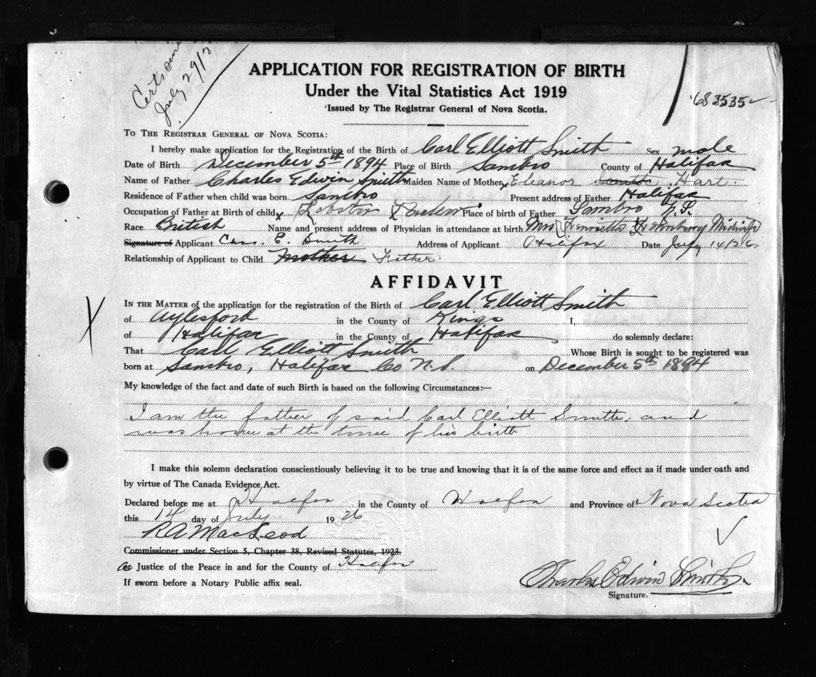 Certs
July 29/2
APPLICATION FOR REGISTRATION OF BIRTH
Under the Vital Statistics Act 1919
Issued by The Registrar General of Nova Scotia.
683535
TO THE REGISTRAR GENERAL OF NOVA SCOTIA:
I hereby make application for the Registration of the Birth of Carl Elliott Smith Sex male
Date of Birth December 5th 1894 Place of Birth Sambro County of Halifax
Name of Father Charles Edwin Smith Maiden Name of Mother Eleanor Hart.
Residence of Father when child was born Sambro Present address of Father Halifax
Occupation of Father at Birth of child Lobster Place of birth of Father Sambro N.S.
Race British Name and present address of Physician in attendance at birth Mrs Henrietta Midwife
Signature of Applicant Chas. E. Smith Address of Applicant Halifax Date July 14/26
Relationship of Applicant to Child mother Father
AFFIDAVIT
IN THE MATTER of the application for the registration of the Birth of Carl Elliott Smith
of Aylesford in the County of Kings I,
of Halifax in the County of Halifax do solemnly declare:
That Carl Elliott Smith Whose Birth is sought to be registered was
born at Sambro, Halifax Co N.S. on December 5th 1894
My knowledge of the fact and date of such Birth is based on the following Circumstances:—
I am the father of said Carl Elliott Smith, and
was home at the time of his birth
I make this solemn declaration conscientiously believing it to be true and knowing that it is of the same force and effect as if made under oath and
by virtue of The Canada Evidence Act.
Declared before me at Halifax in the County of Halifax and Province of Nova Scotia
this 14 day of July 1926
R A MacLeod
Commissioner under Section 5, Chapter 38, Revised Statutes, 1923.
or Justice of the Peace in and for the County of Halifax
If sworn before a Notary Public affix seal.
Charles Edwin Smith
Signature.